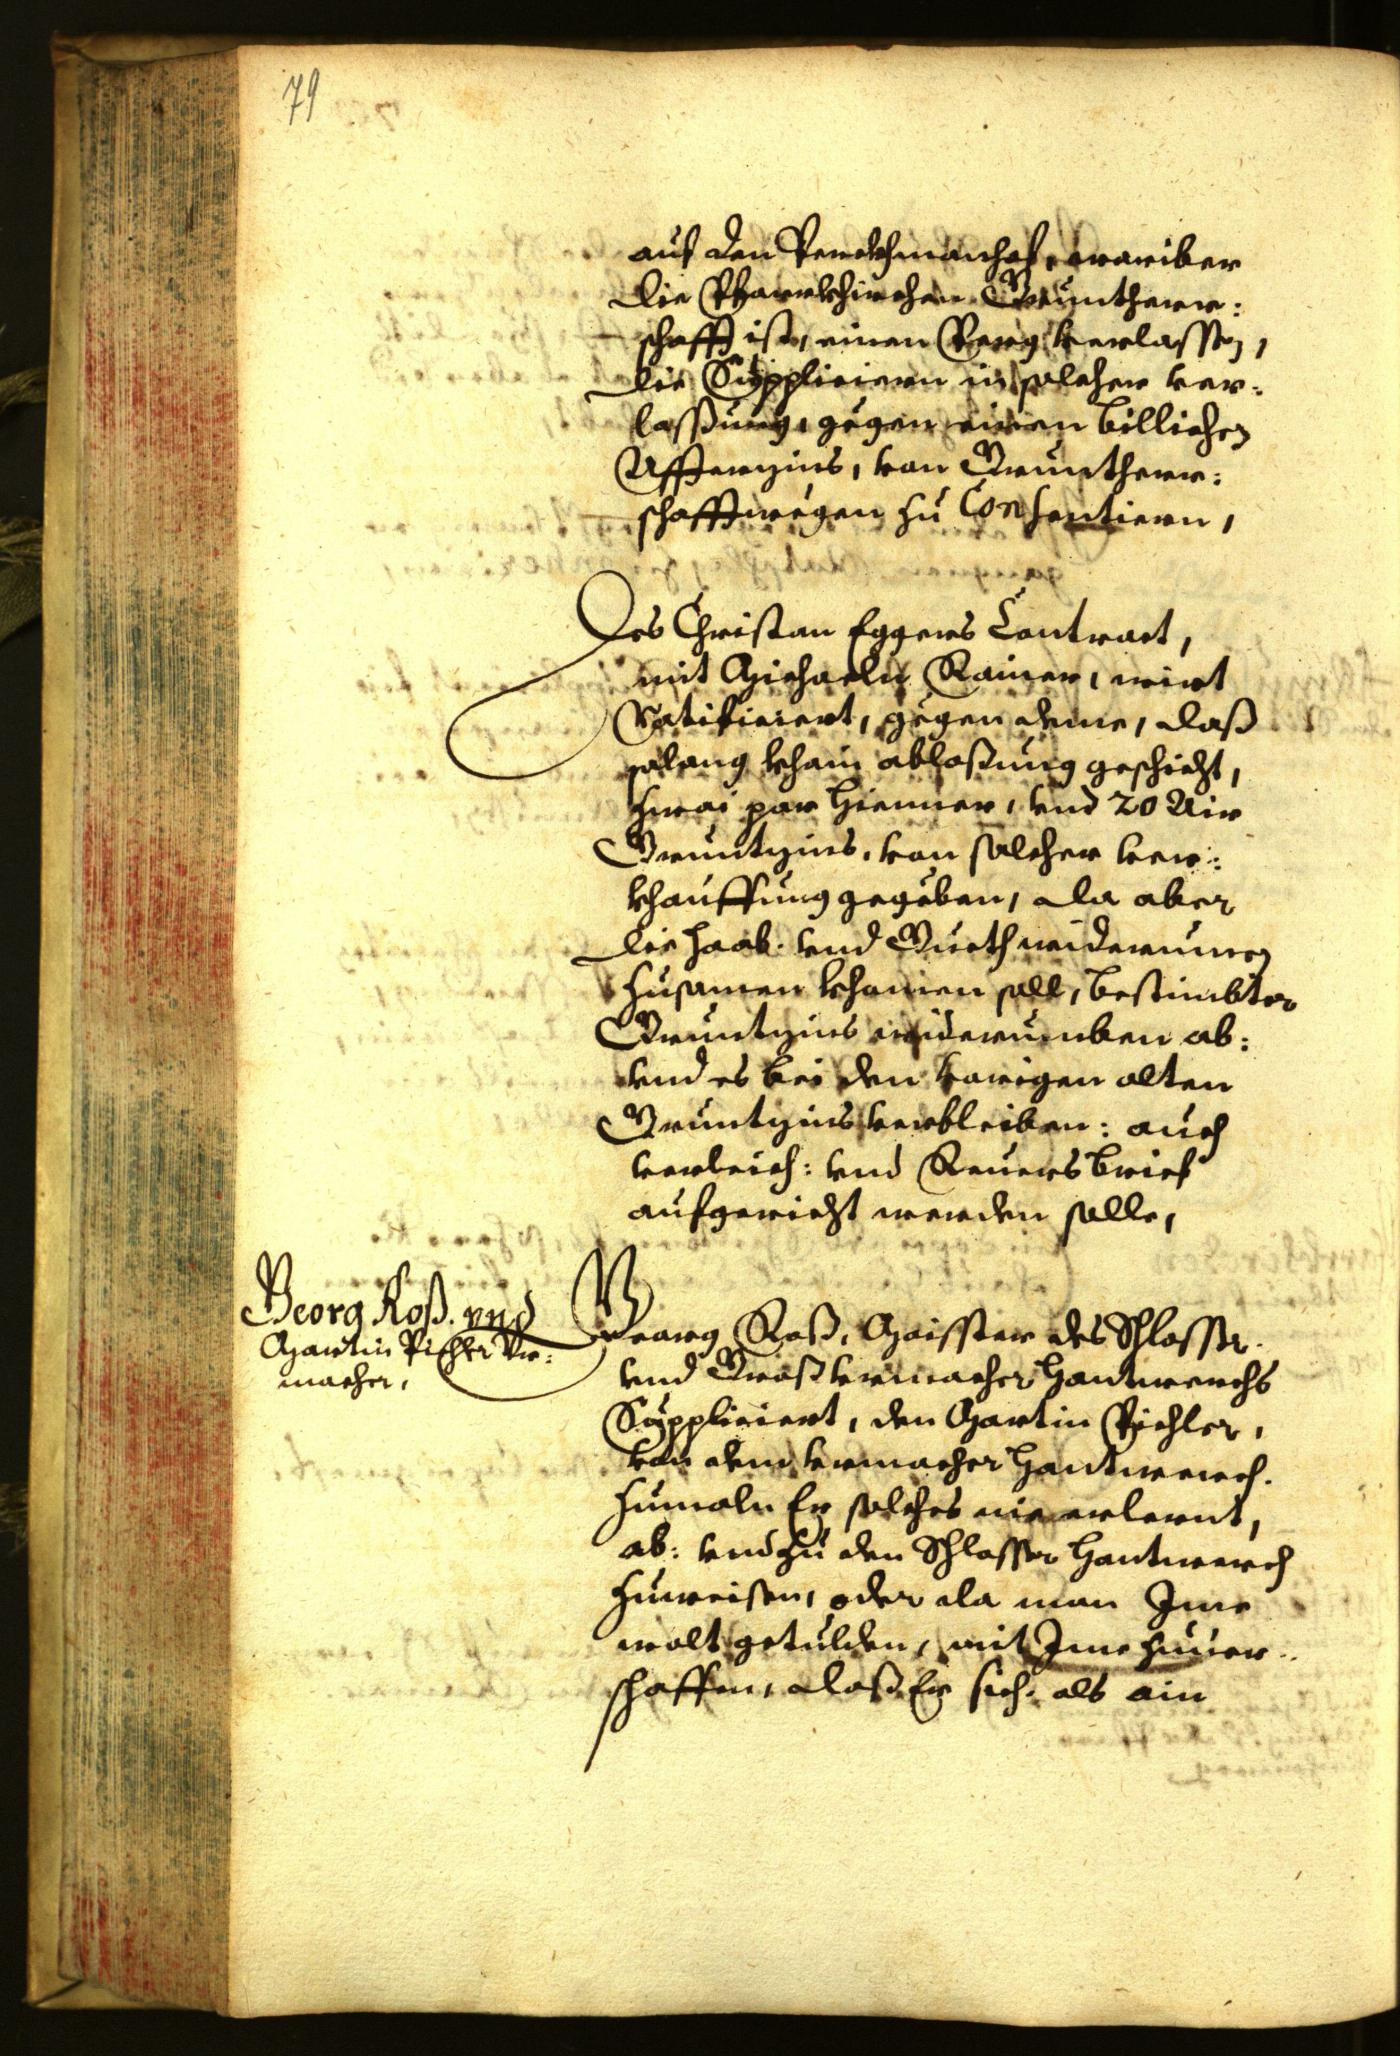 79
auf den Perckhmanhof, wariber
die Pfarrkhirchen Gruntherr:
schafft ist, einen Perg verlassen,
die Supplicieren in solcher ver:
lassung, gegen einen billichen
Afterzins, von Gruntherr:
schafft wegen zu Consentiern,
Des Christan Eggers Contract,
mit Michaeln Rainer, wirt
Ratificiert, gegen deme, daß
solang khain ablosung geschicht,
zwai par Hienner, vnd 20 Air
Gruntzins, von solcher ver:
khauffung gegeben, da aber
die Haab vnd Gueth widerumen
zusamen khomen soll, bestimbter
Gruntzins widerumben ab:
vnd es bei den vorigen alten
Gruntzins verbleiben: auch
verleich: vnd Reuers brief
aufgericht werden solle,
Georg Roß. vnd
Martin Pichler Vr:
macher,
Georg Roß, Maisster des Schlosser
vnd Großvrmacher Hantwerchs
Suppliciert, den Martin Pichler,
von dem vrmacher Hantwerch.
zumaln Er solches nie erlernt,
ab: vnd zu den Schlosser Hantwerch
zuweisen, oder da man Ime
wolt getulden, mit Ime zuuer:
schaffen, daß Er sich als ain